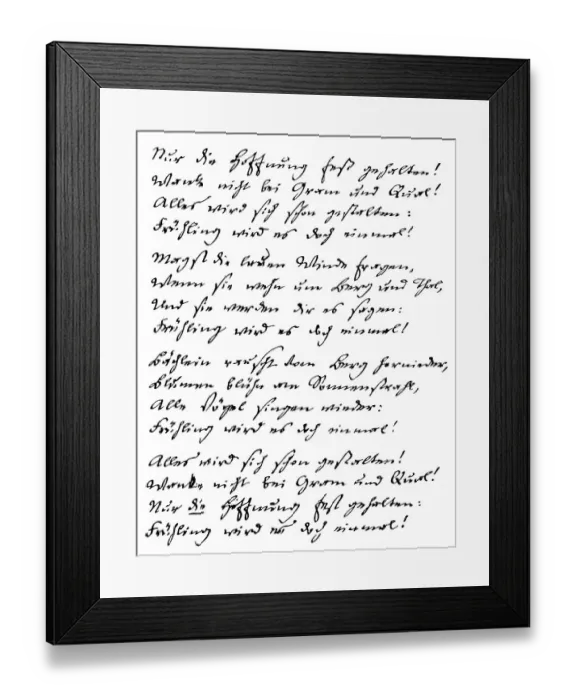 Nur die Hoffnung fest gehalten!
Wank nicht bei Gram und Qual!
Alles wird sich schon gestalten:
Frühling wird es doch einmal!
Magst die lauen Winde fragen,
Wenn sie wehn um Berg und Thal,
Und sie werden dir es sagen:
Frühling wird es doch einmal!
Bächlein rauscht vom Berg hernieder,
Blumen blühn am Sonnenstrahl,
Alle Vögel singen wieder:
Frühling wird es doch einmal!
Alles wird sich schon gestalten!
Wanke nicht bei Gram und Qual!
Nur die Hoffnung fest gehalten:
Frühling wird es doch einmal!